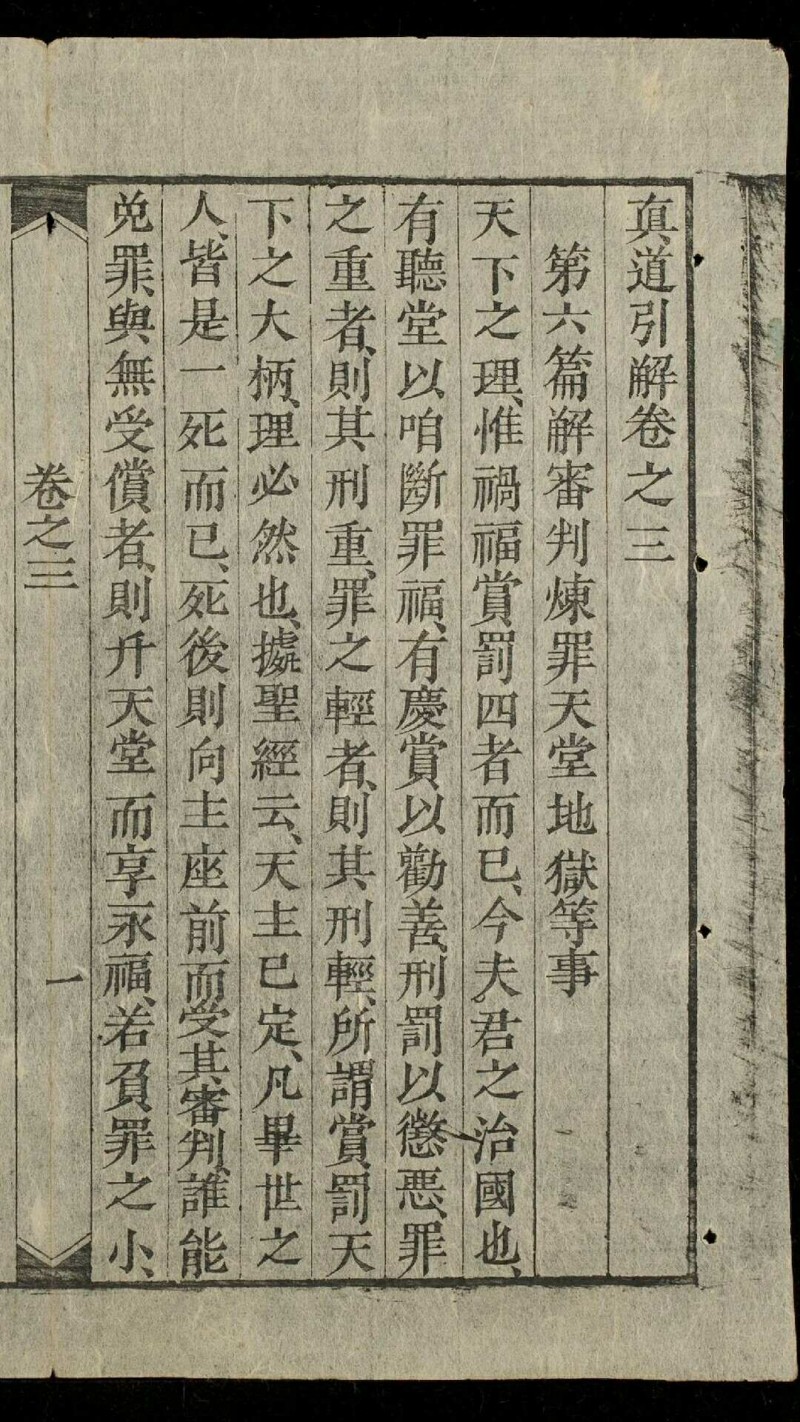 真道引解卷之三
第六篇解審判煉罪天堂地獄等事
天下之理、惟禍福賞罰四者而已、今夫君之治國也、
有聽堂以咱斷罪福、有慶賞以勸善、刑罰以懲惡、罪
之重者、則其刑重、罪之輕者、則其刑輕、所謂賞罰天
下之大柄、理必然也、據聖經云、天主已定、凡畢世之
人、皆是一死而已、死後則向主座前而受其審判、誰能
免罪、與無受償者、則升天堂而享永福、若負罪之小、
卷之三
一